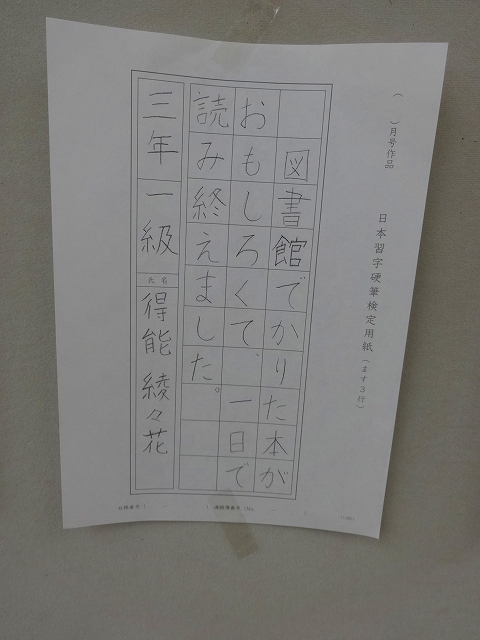 （　　）月号作品
日本習字硬筆検定用紙（ます３行）
図書館でかりた本が
おもしろくて、一日で
読み終えました。
三年 一級
氏名
得能 綾々花